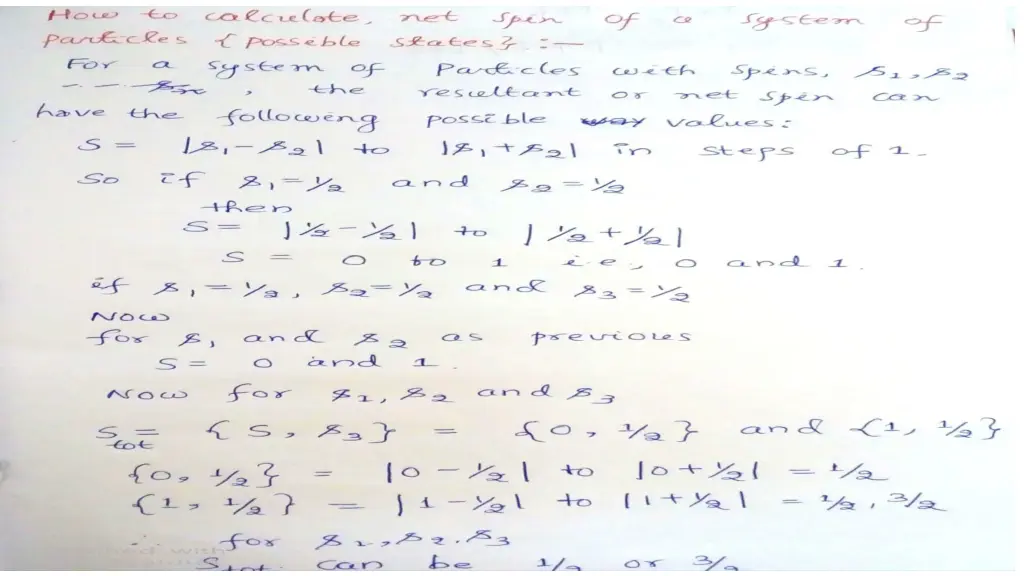 How to calculate, net spin of a system of
particles { possible states} :—
For a system of Particles with spins, s1, s2
- - - - sn, the resultant or net spin can
have the following possible way values:
S = |s1 - s2| to |s1 + s2| in steps of 1.
So if s1 = 1/2 and s2 = 1/2
then
S = |1/2 - 1/2| to |1/2 + 1/2|
S = 0 to 1 i.e., 0 and 1.
if s1 = 1/2, s2 = 1/2 and s3 = 1/2
Now
for s1 and s2 as previous
S = 0 and 1.
Now for s1, s2 and s3
Stot = { S, s3} = {0, 1/2} and {1, 1/2}
{0, 1/2} = |0 - 1/2| to |0 + 1/2| = 1/2
{1, 1/2} = |1 - 1/2| to |1 + 1/2| = 1/2, 3/2
∴ for s1, s2, s3
Stot can be 1/2 or 3/2